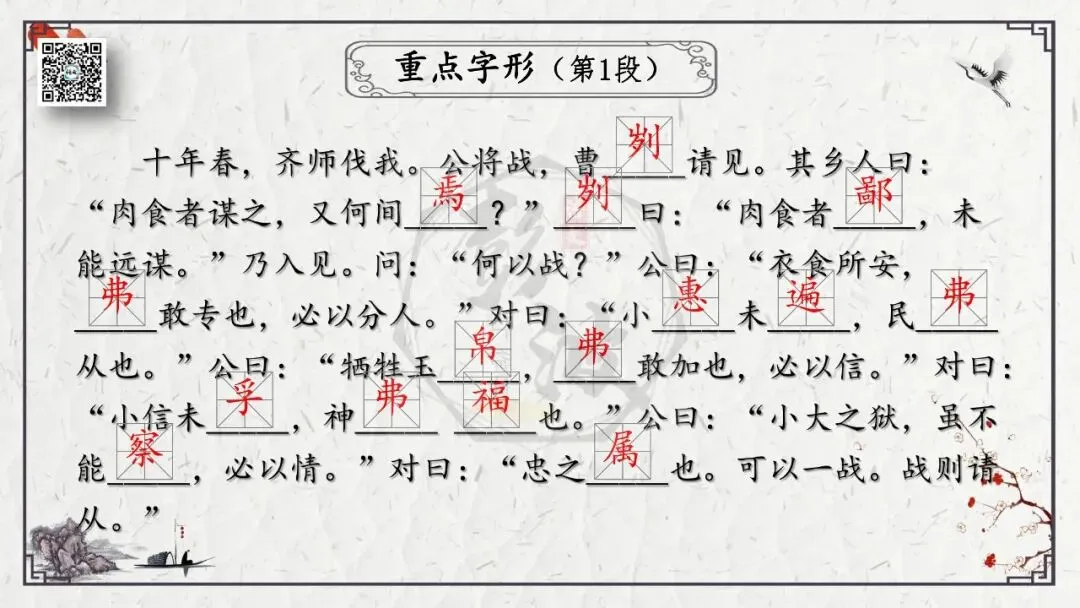 重点字形（第1段）
十年春，齐师伐我。公将战，曹刿请见。其乡人曰：
“肉食者谋之，又何间焉？”刿曰：“肉食者鄙，未
能远谋。”乃入见。问：“何以战？”公曰：“衣食所安，
弗敢专也，必以分人。”对曰：“小惠未遍，民弗
从也。”公曰：“牺牲玉帛，弗敢加也，必以信。”对曰：
“小信未孚，神弗福也。”公曰：“小大之狱，虽不
能察，必以情。”对曰：“忠之属也。可以一战。战则请
从。”